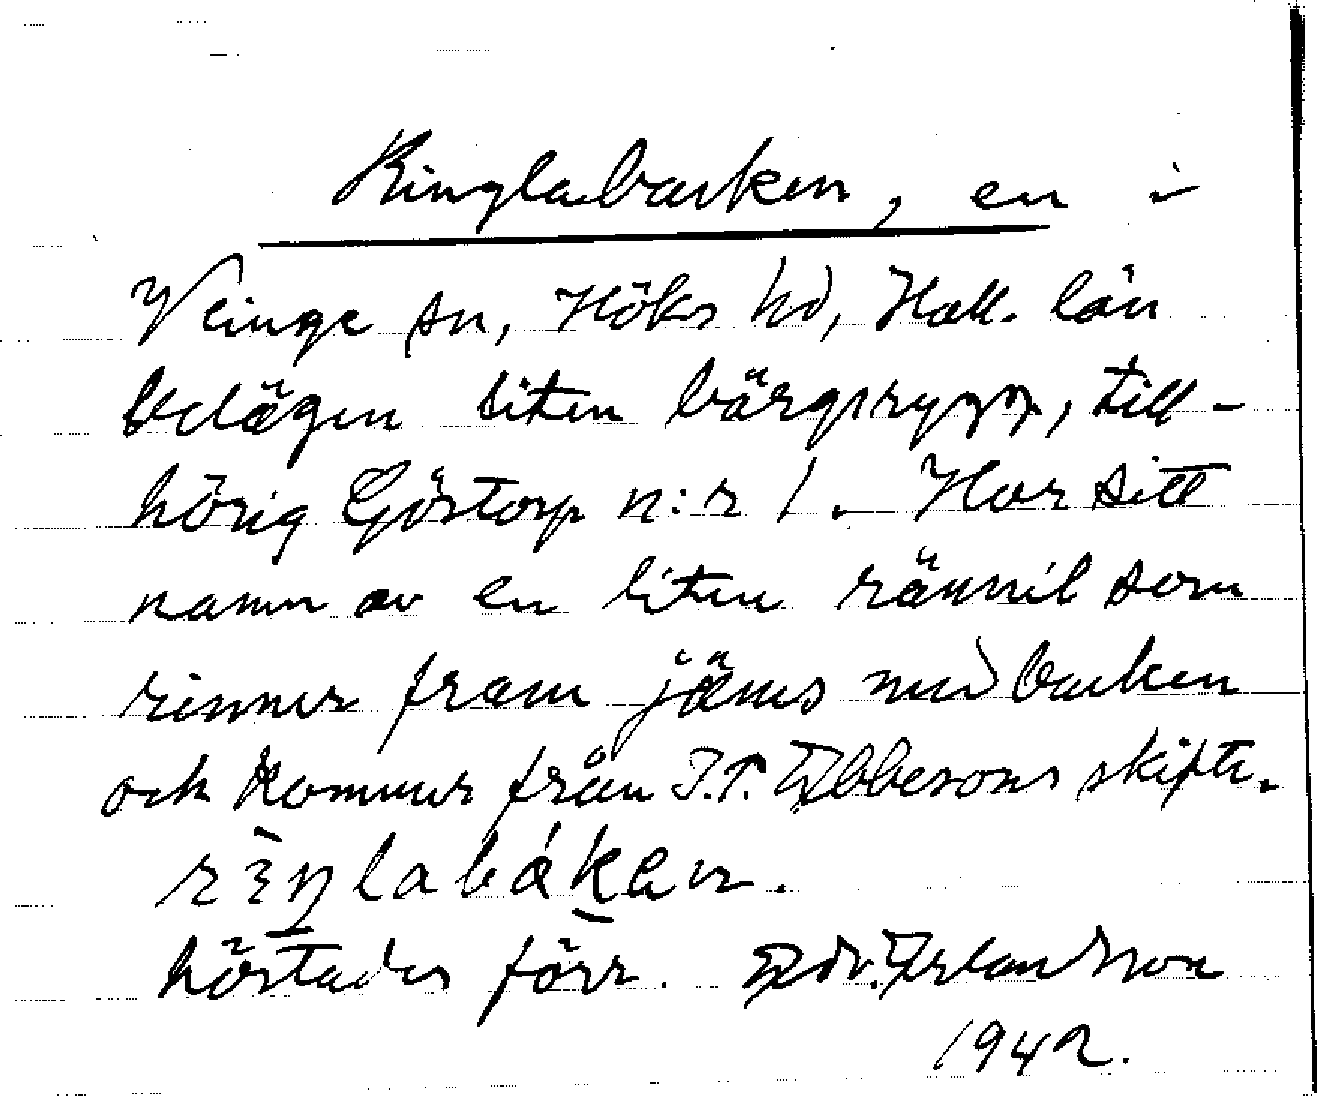 Ringlabacken, en i
Veinge sn, Höks hd, Hall. län
belägen liten bärgsrygg, till-
hörig Göstorp n:r 1. Har sitt
namn av en liten rännil som
rinner fram jäms med backen
och kommer från J.P. Ebbesons skifte.
hörtades förr. Edv. Erlandsson
1942.